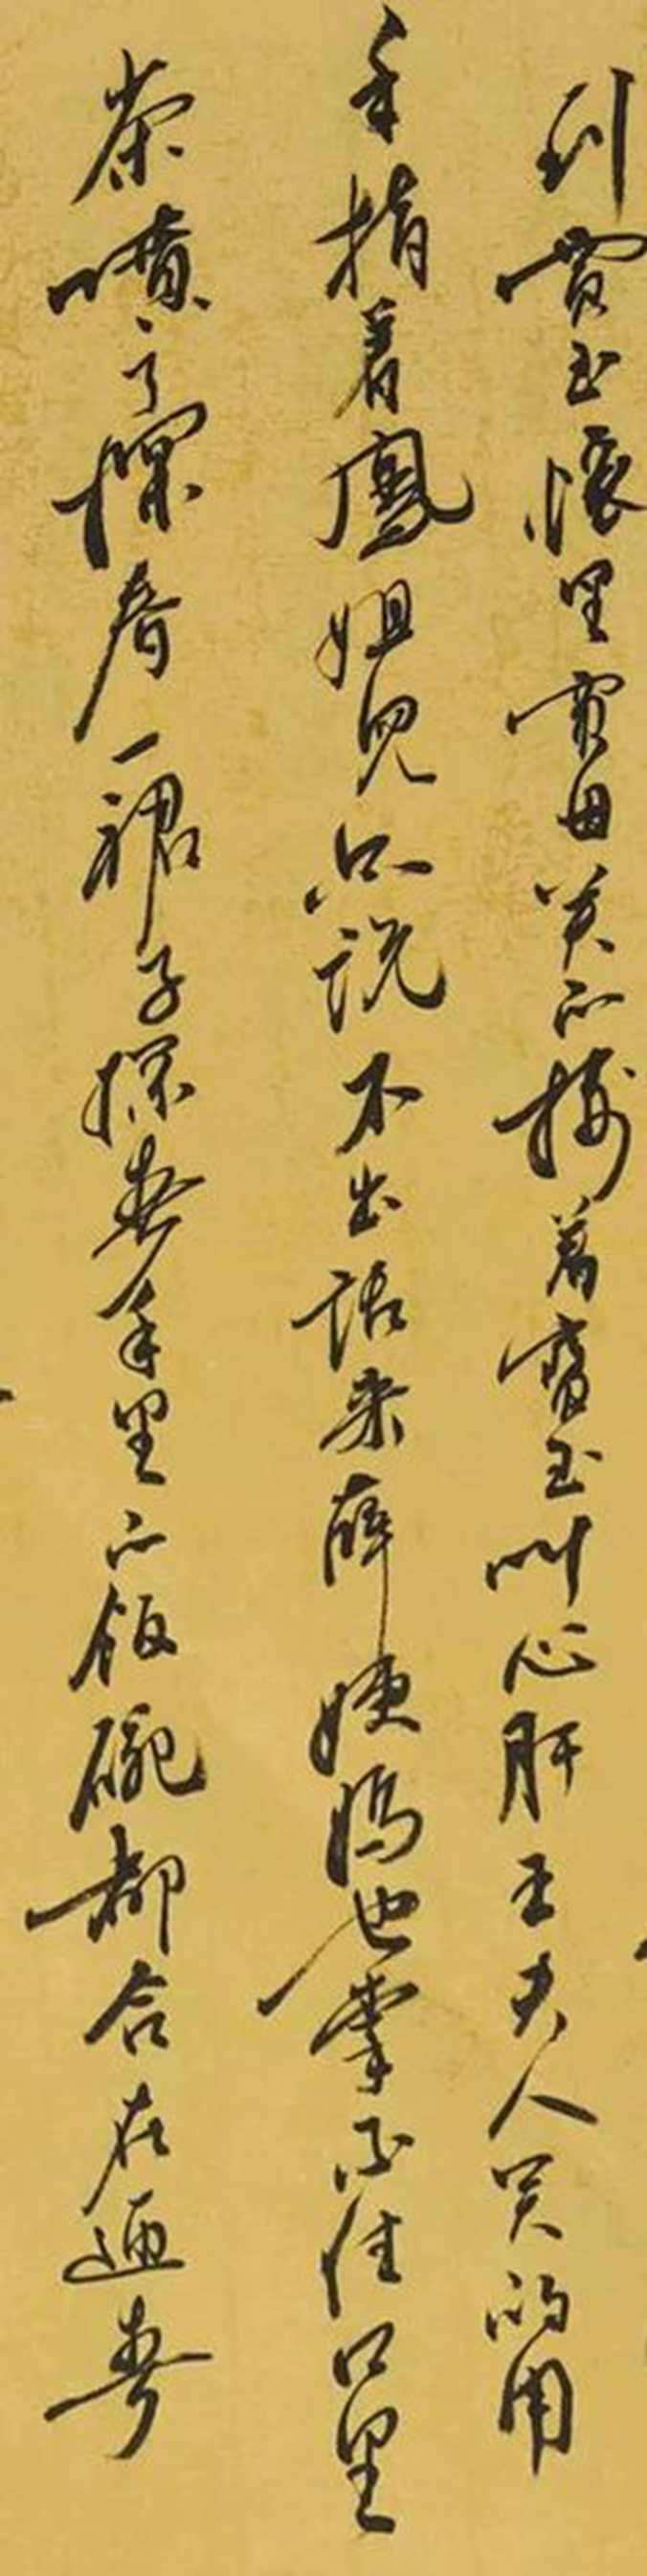 到賈玉懷里賈母笑的摟着寶玉叫心肝王夫人笑的用
手指着鳳姐兒只说不出話来薛姨媽也掌不住口里
茶噴了探春一裙子探春手里的飯碗都合在迎春